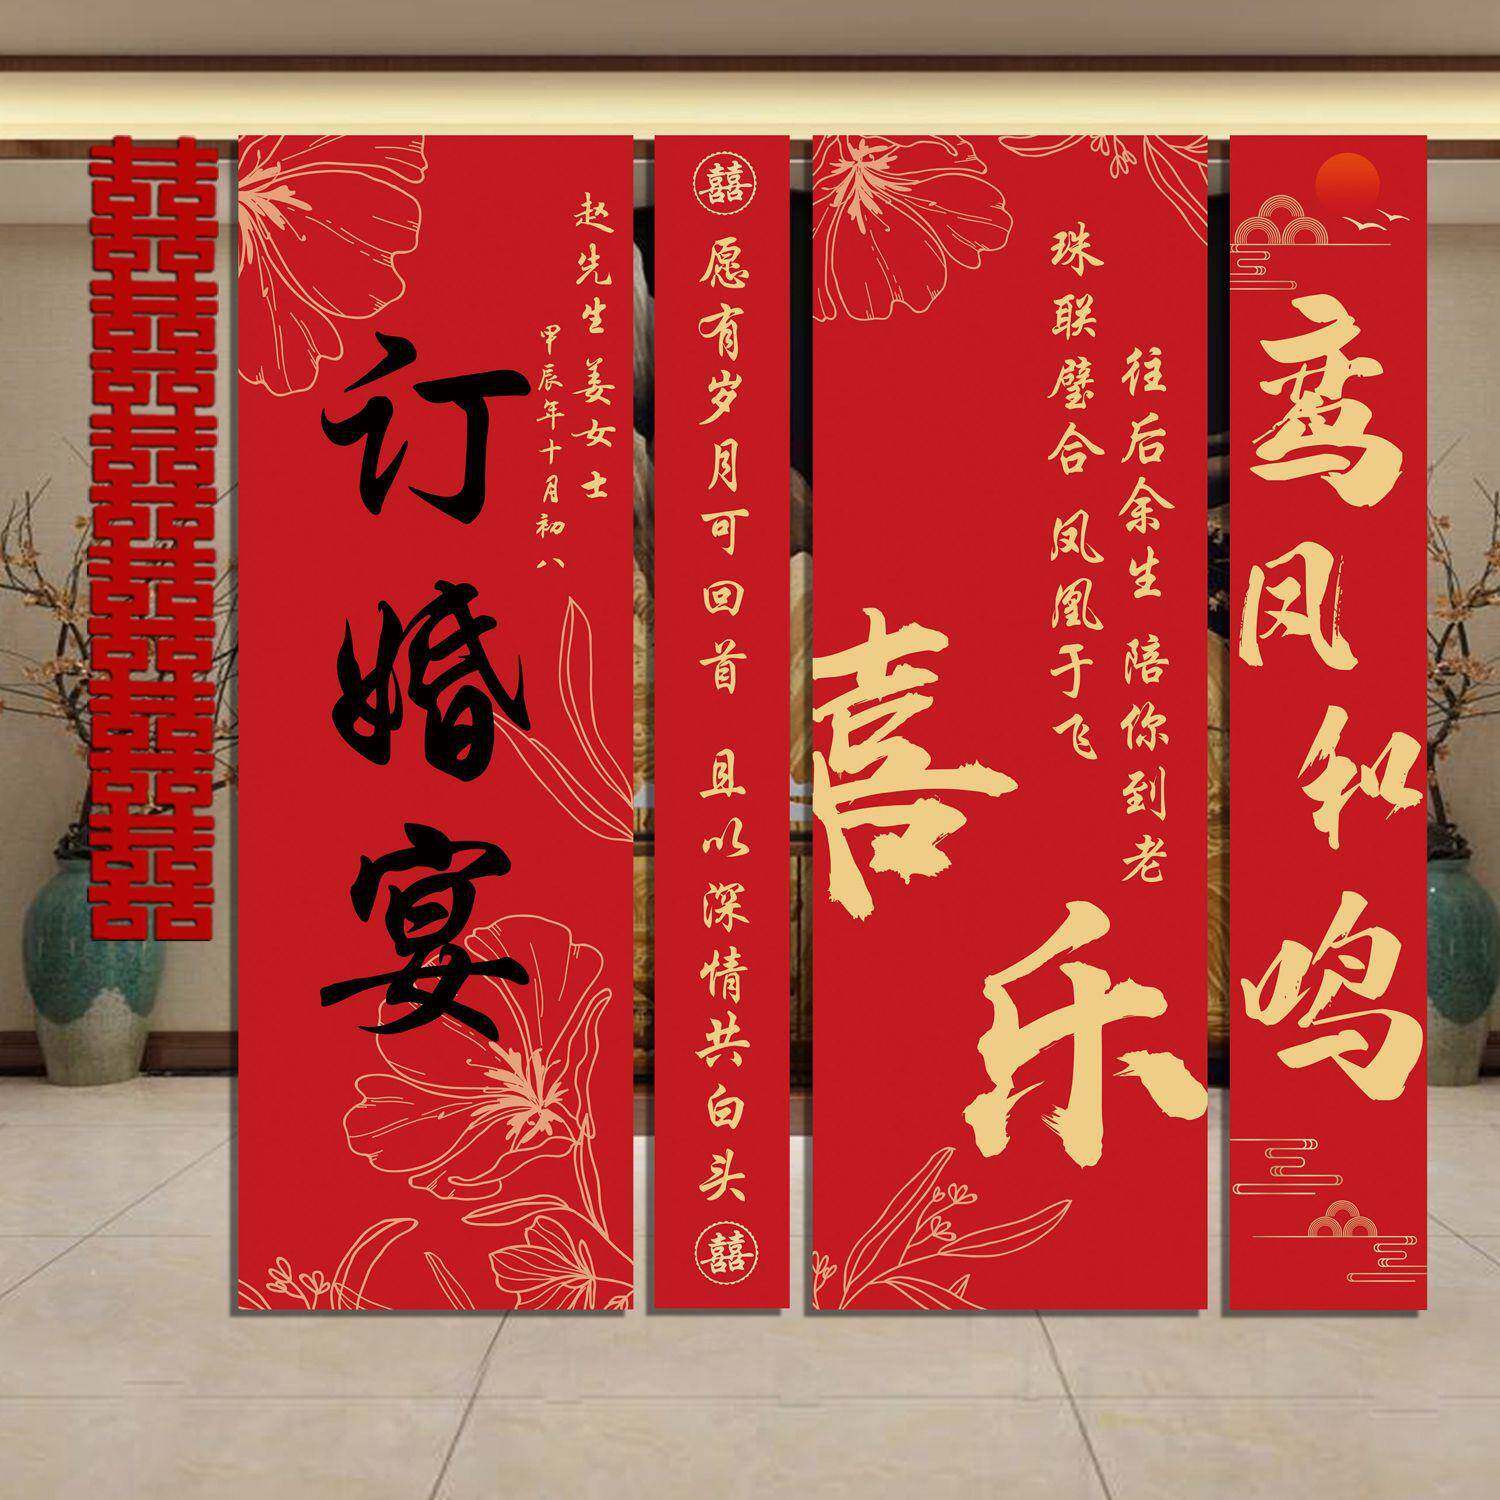 囍
囍
囍
囍
囍
囍
囍
囍
囍
囍
囍
囍
赵先生姜女士
甲辰年十月初八
订婚宴
囍
愿有岁月可回首 且以深情共白头
囍
往后余生 陪你到老
珠联璧合 凤凰于飞
喜乐
鸾凤和鸣